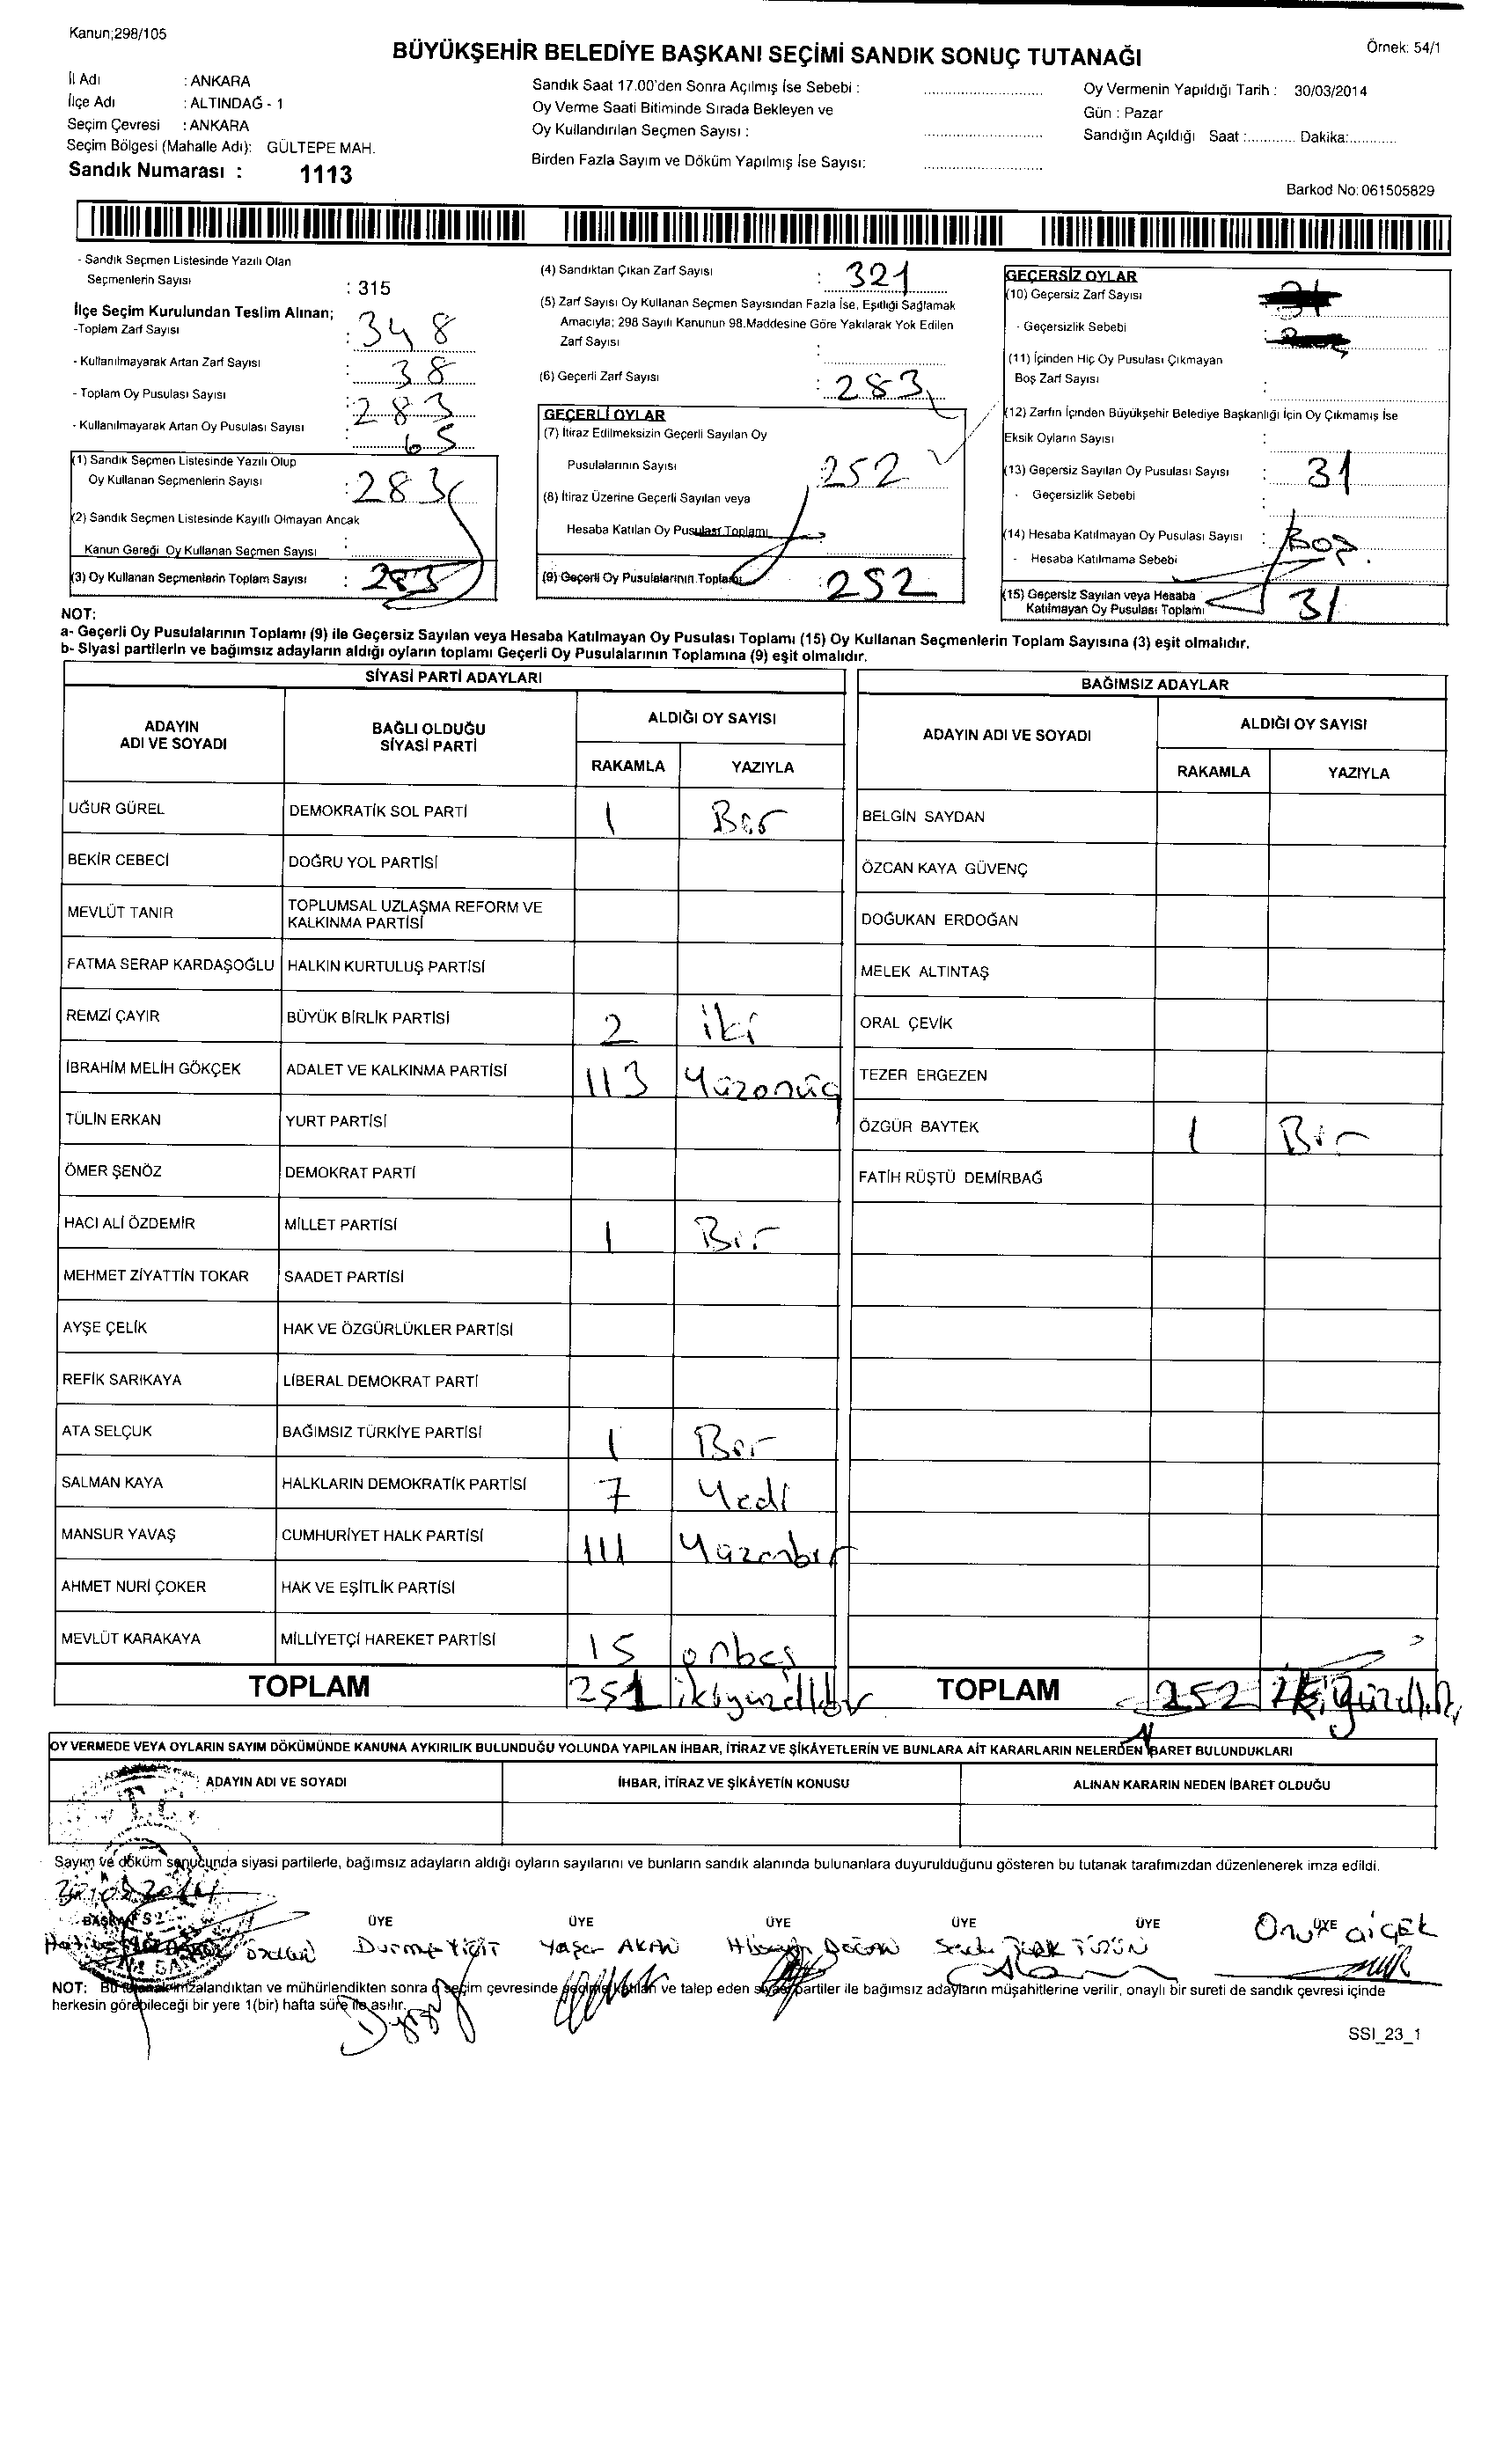 Kanun;298/105
Örnek: 54/1
BÜYÜKŞEHİR BELEDİYE BAŞKANI SEÇİMİ SANDIK SONUÇ TUTANAĞI
İl Adı : ANKARA
İlçe Adı : ALTINDAĞ - 1
Seçim Çevresi : ANKARA
Seçim Bölgesi (Mahalle Adı): GÜLTEPE MAH.
Sandık Numarası : 1113
Sandık Saat 17.00'den Sonra Açılmış İse Sebebi :
Oy Verme Saati Bitiminde Sırada Bekleyen ve
Oy Kullandırılan Seçmen Sayısı :
Birden Fazla Sayım ve Döküm Yapılmış İse Sayısı:
Oy Vermenin Yapıldığı Tarih : 30/03/2014
Gün : Pazar
Sandığın Açıldığı Saat :............ Dakika:............
Barkod No: 061505829
- Sandık Seçmen Listesinde Yazılı Olan
Seçmenlerin Sayısı : 315
İlçe Seçim Kurulundan Teslim Alınan;
-Toplam Zarf Sayısı : 348
- Kullanılmayarak Artan Zarf Sayısı : 38
- Toplam Oy Pusulası Sayısı : 283
- Kullanılmayarak Artan Oy Pusulası Sayısı : 65
(1) Sandık Seçmen Listesinde Yazılı Olup
Oy Kullanan Seçmenlerin Sayısı : 283
(2) Sandık Seçmen Listesinde Kayıtlı Olmayan Ancak
Kanun Gereği Oy Kullanan Seçmen Sayısı :
(3) Oy Kullanan Seçmenlerin Toplam Sayısı : 283
(4) Sandıktan Çıkan Zarf Sayısı : 321
(5) Zarf Sayısı Oy Kullanan Seçmen Sayısından Fazla İse, Eşitliği Sağlamak
Amacıyla; 298 Sayılı Kanunun 98.Maddesine Göre Yakılarak Yok Edilen
Zarf Sayısı :
(6) Geçerli Zarf Sayısı : 283
GEÇERLİ OYLAR
(7) İtiraz Edilmeksizin Geçerli Sayılan Oy
Pusulalarının Sayısı : 252
(8) İtiraz Üzerine Geçerli Sayılan veya
Hesaba Katılan Oy Pusulası Toplamı
(9) Geçerli Oy Pusulalarının Toplamı : 252
GEÇERSİZ OYLAR
(10) Geçersiz Zarf Sayısı
- Geçersizlik Sebebi
(11) İçinden Hiç Oy Pusulası Çıkmayan
Boş Zarf Sayısı :
(12) Zarfın İçinden Büyükşehir Belediye Başkanlığı İçin Oy Çıkmamış İse
Eksik Oyların Sayısı :
(13) Geçersiz Sayılan Oy Pusulası Sayısı : 31
- Geçersizlik Sebebi :
(14) Hesaba Katılmayan Oy Pusulası Sayısı : Boş
- Hesaba Katılmama Sebebi :
(15) Geçersiz Sayılan veya Hesaba
Katılmayan Oy Pusulası Toplamı 31
NOT:
a- Geçerli Oy Pusulalarının Toplamı (9) ile Geçersiz Sayılan veya Hesaba Katılmayan Oy Pusulası Toplamı (15) Oy Kullanan Seçmenlerin Toplam Sayısına (3) eşit olmalıdır.
b- Siyasi partilerin ve bağımsız adayların aldığı oyların toplamı Geçerli Oy Pusulalarının Toplamına (9) eşit olmalıdır.
SİYASİ PARTİ ADAYLARI
ADAYIN ADI VE SOYADI
BAĞLI OLDUĞU SİYASİ PARTİ
ALDIĞI OY SAYISI
RAKAMLA YAZIYLA
UĞUR GÜREL DEMOKRATİK SOL PARTİ 1 Bir
BEKİR CEBECİ DOĞRU YOL PARTİSİ
MEVLÜT TANIR TOPLUMSAL UZLAŞMA REFORM VE
KALKINMA PARTİSİ
FATMA SERAP KARDAŞOĞLU HALKIN KURTULUŞ PARTİSİ
REMZİ ÇAYIR BÜYÜK BİRLİK PARTİSİ 2 iki
İBRAHİM MELİH GÖKÇEK ADALET VE KALKINMA PARTİSİ 113 Yüzonüç
TÜLİN ERKAN YURT PARTİSİ
ÖMER ŞENÖZ DEMOKRAT PARTİ
HACI ALİ ÖZDEMİR MİLLET PARTİSİ 1 Bir
MEHMET ZİYATTİN TOKAR SAADET PARTİSİ
AYŞE ÇELİK HAK VE ÖZGÜRLÜKLER PARTİSİ
REFİK SARIKAYA LİBERAL DEMOKRAT PARTİ
ATA SELÇUK BAĞIMSIZ TÜRKİYE PARTİSİ 1 Bir
SALMAN KAYA HALKLARIN DEMOKRATİK PARTİSİ 7 Yedi
MANSUR YAVAŞ CUMHURİYET HALK PARTİSİ 111 Yüzonbir
AHMET NURİ ÇOKER HAK VE EŞİTLİK PARTİSİ
MEVLÜT KARAKAYA MİLLİYETÇİ HAREKET PARTİSİ 15 onbeş
TOPLAM 251 ikiyüzellibir
BAĞIMSIZ ADAYLAR
ADAYIN ADI VE SOYADI
ALDIĞI OY SAYISI
RAKAMLA YAZIYLA
BELGİN SAYDAN
ÖZCAN KAYA GÜVENÇ
DOĞUKAN ERDOĞAN
MELEK ALTINTAŞ
ORAL ÇEVİK
TEZER ERGEZEN
ÖZGÜR BAYTEK 1 Bir
FATİH RÜŞTÜ DEMİRBAĞ
TOPLAM 252
OY VERMEDE VEYA OYLARIN SAYIM DÖKÜMÜNDE KANUNA AYKIRILIK BULUNDUĞU YOLUNDA YAPILAN İHBAR, İTİRAZ VE ŞİKÂYETLERİN VE BUNLARA AİT KARARLARIN NELERDEN İBARET BULUNDUKLARI
ADAYIN ADI VE SOYADI
İHBAR, İTİRAZ VE ŞİKÂYETİN KONUSU
ALINAN KARARIN NEDEN İBARET OLDUĞU
Sayım ve döküm sonucunda siyasi partilerle, bağımsız adayların aldığı oyların sayılarını ve bunların sandık alanında bulunanlara duyurulduğunu gösteren bu tutanak tarafımızdan düzenlenerek imza edildi.
BAŞKAN ÜYE ÜYE ÜYE ÜYE ÜYE ÜYE
Durmuş Yiğit Yaşar AKAN Hüseyin DOĞAN Onur ÇİÇEK
NOT: Bu tutanak imzalandıktan ve mühürlendikten sonra o seçim çevresinde seçime katılan ve talep eden siyasi partiler ile bağımsız adayların müşahitlerine verilir, onaylı bir sureti de sandık çevresi içinde
herkesin görebileceği bir yere 1(bir) hafta süre ile asılır.
SSI_23_1